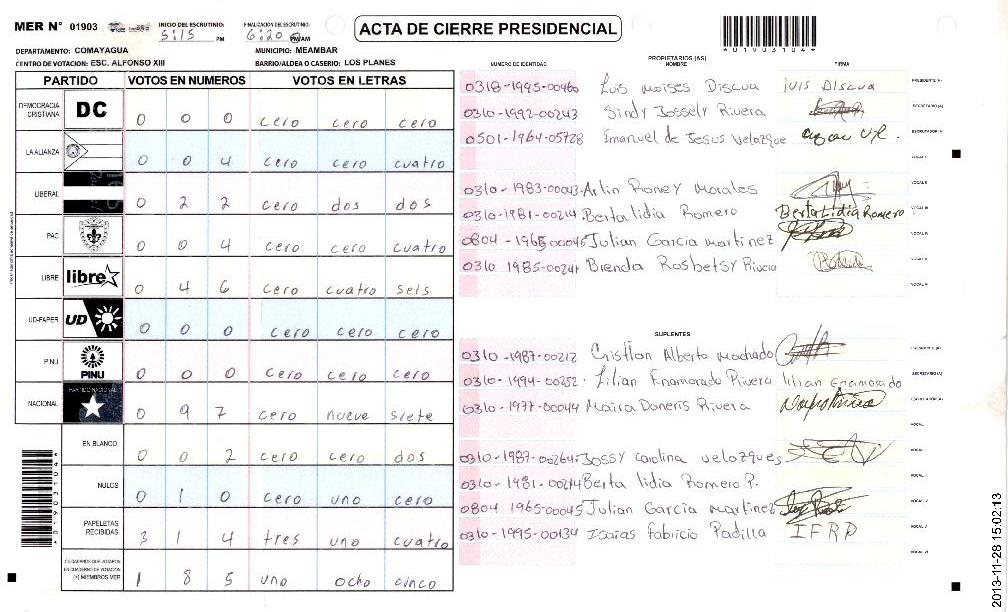 MER N° 01903
INICIO DEL ESCRUTINIO: 5:15 PM
FINALIZACION DEL ESCRUTINIO: 6:20 PM/AM
ACTA DE CIERRE PRESIDENCIAL
*01903104*
DEPARTAMENTO: COMAYAGUA
MUNICIPIO: MEAMBAR
CENTRO DE VOTACION: ESC. ALFONSO XIII
BARRIO/ALDEA O CASERIO: LOS PLANES
PARTIDO VOTOS EN NUMEROS VOTOS EN LETRAS
DEMOCRACIA CRISTIANA DC 0 0 0 cero cero cero
LA ALIANZA 0 0 4 cero cero cuatro
LIBERAL 0 2 2 cero dos dos
PAC 0 0 4 cero cero cuatro
LIBRE libre 0 4 6 cero cuatro seis
UD-FAPER UD 0 0 0 cero cero cero
PINU PINU 0 0 0 cero cero cero
NACIONAL PARTIDO NACIONAL 0 9 7 cero nueve siete
EN BLANCO 0 0 2 cero cero dos
NULOS 0 1 0 cero uno cero
PAPELETAS RECIBIDAS 3 1 4 tres uno cuatro
CIUDADANOS QUE VOTARON EN CUADERNO DE VOTACION (+) MIEMBROS MER 1 8 5 uno ocho cinco
PROPIETARIOS (AS)
NUMERO DE IDENTIDAD NOMBRE FIRMA
0318-1995-00460 Luis Moises Discua luis Discua PRESIDENTE (A)
0310-1992-00243 Sindy Jossely Rivera SECRETARIO (A)
0501-1964-05728 Emanuel de Jesus Velazque ESCRUTADOR (A)
VOCAL I
0310-1983-00043 Arlin Roney Morales VOCAL II
0310-1981-00214 Berta lidia Romero Berta Lidia Romero VOCAL III
0804-1965-00045 Julian Garcia Martinez VOCAL IV
0310 1985-00241 Brenda Rosbetsy Rivera VOCAL V
VOCAL VI
SUPLENTES
0310-1987-00212 Cristian Alberto Machado PRESIDENTE (A)
0310-1994-00252 Lilian Enamorado Rivera lilian Enamorado SECRETARIO (A)
0310-1977-00044 Maira Doneris Rivera ESCRUTADOR (A)
VOCAL I
0310-1987-00264 Jossy carolina velazques VOCAL II
0310-1981-00214 Berta lidia Romero P. VOCAL III
0804 1965-00045 Julian Garcia Martinez VOCAL IV
0310-1995-00134 Isaias Fabricio Padilla IFRP VOCAL V
VOCAL VI
2013-11-28 15:02:13